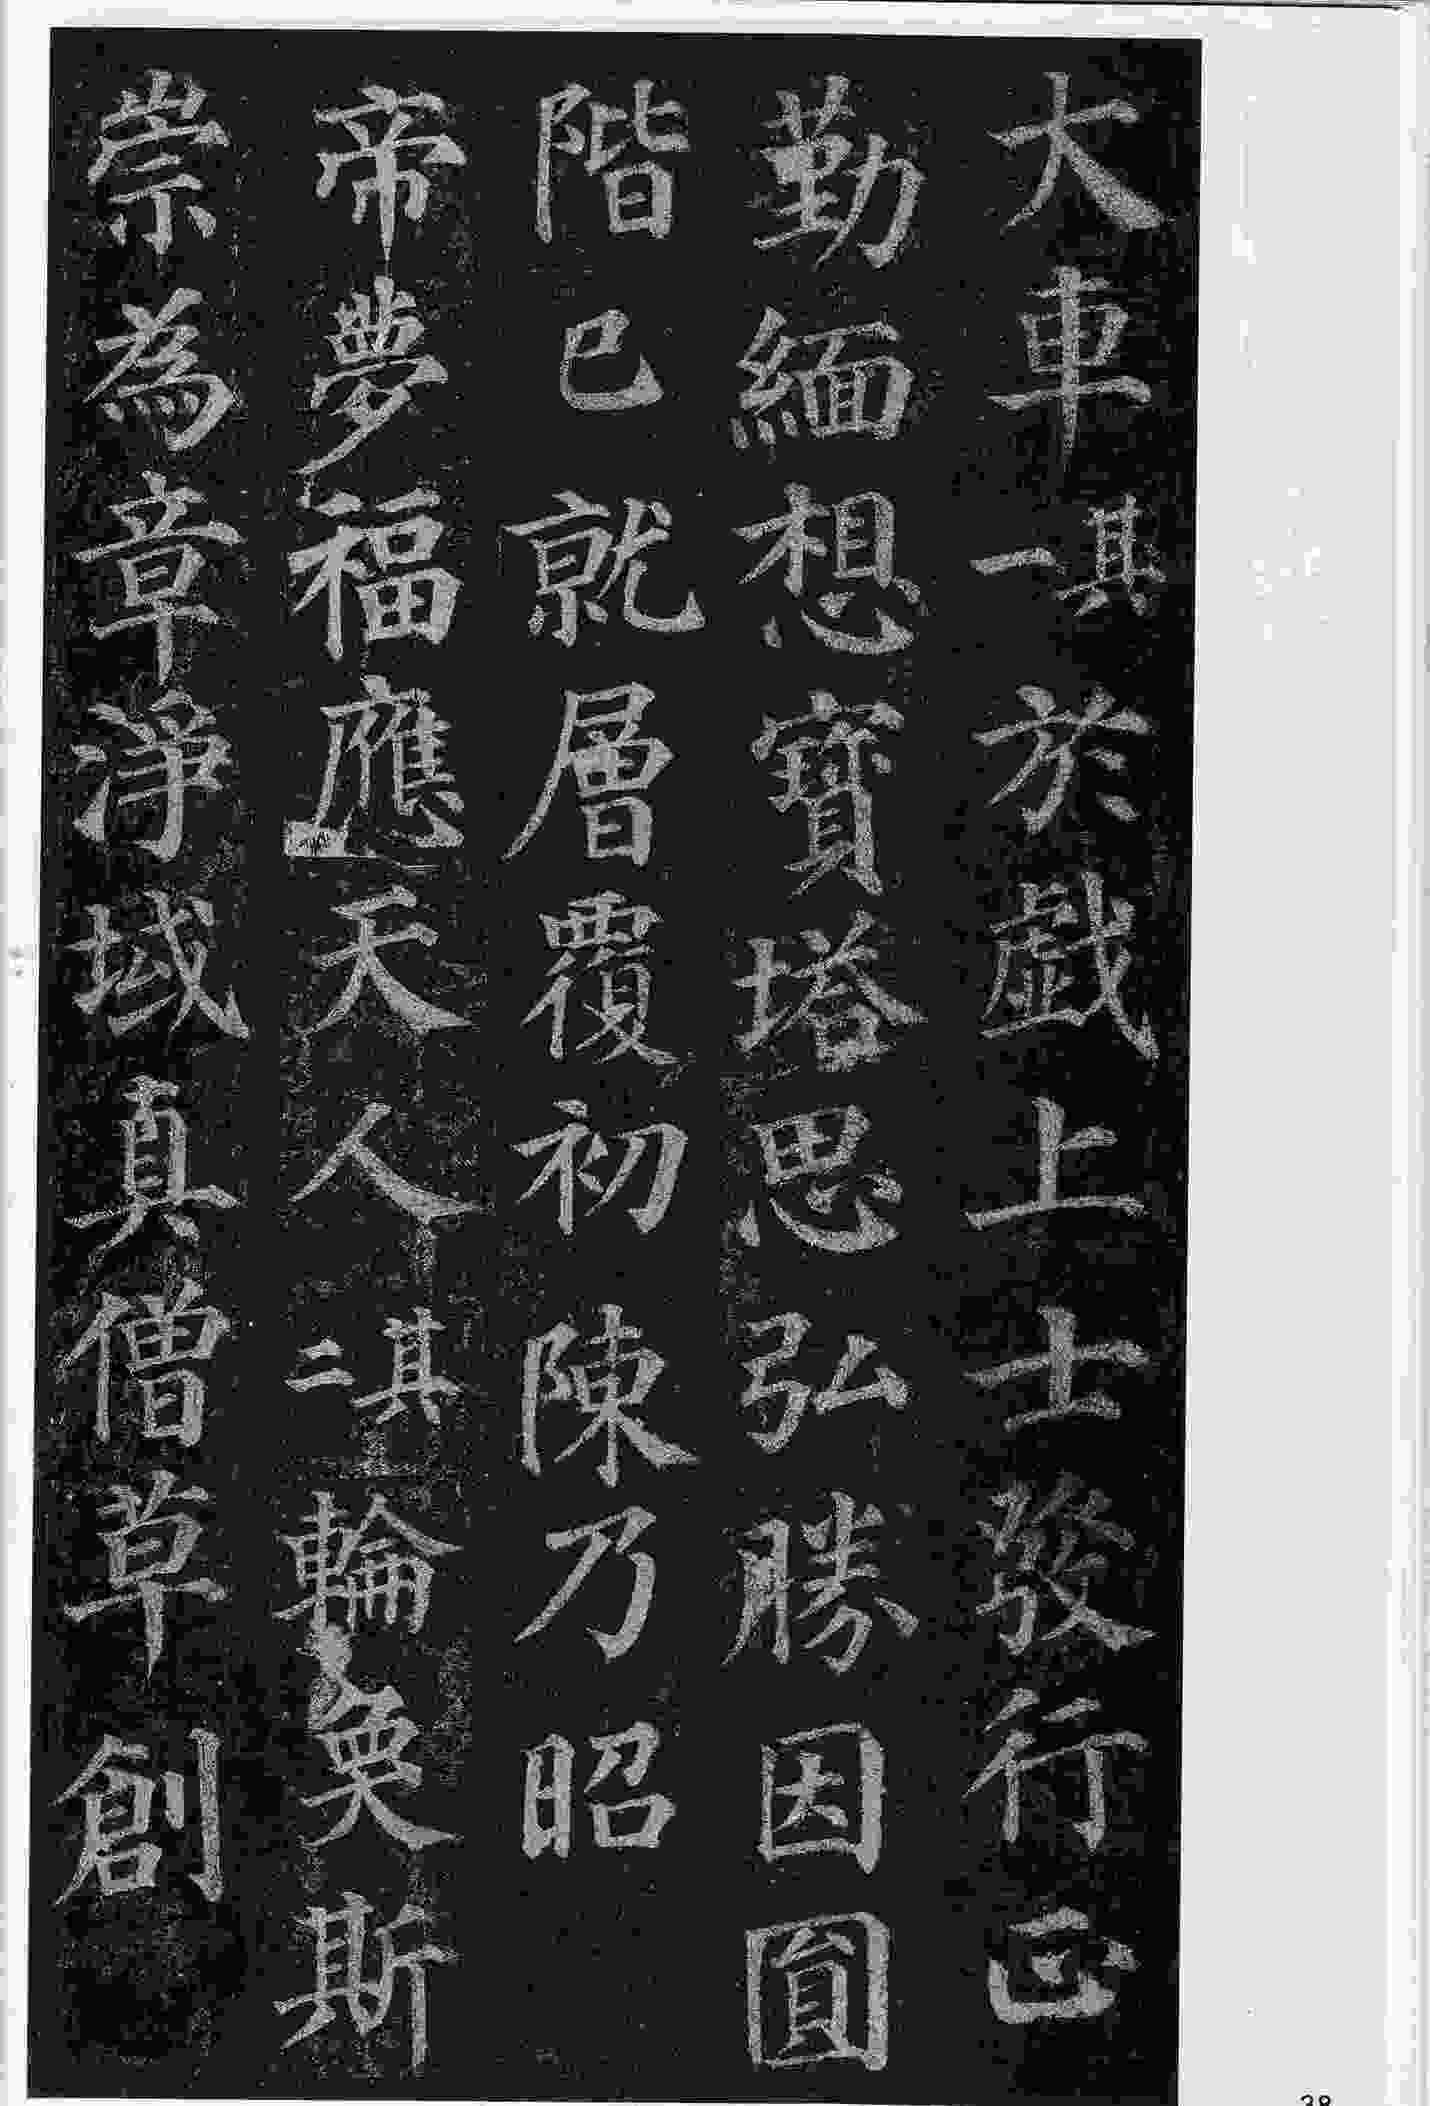 大車其一於戲上士發行正
勤緬想寶塔思弘勝因圓
階已就層覆初陳乃昭
帝夢福應天人其二輪奐斯
崇為章淨域真僧草創
38